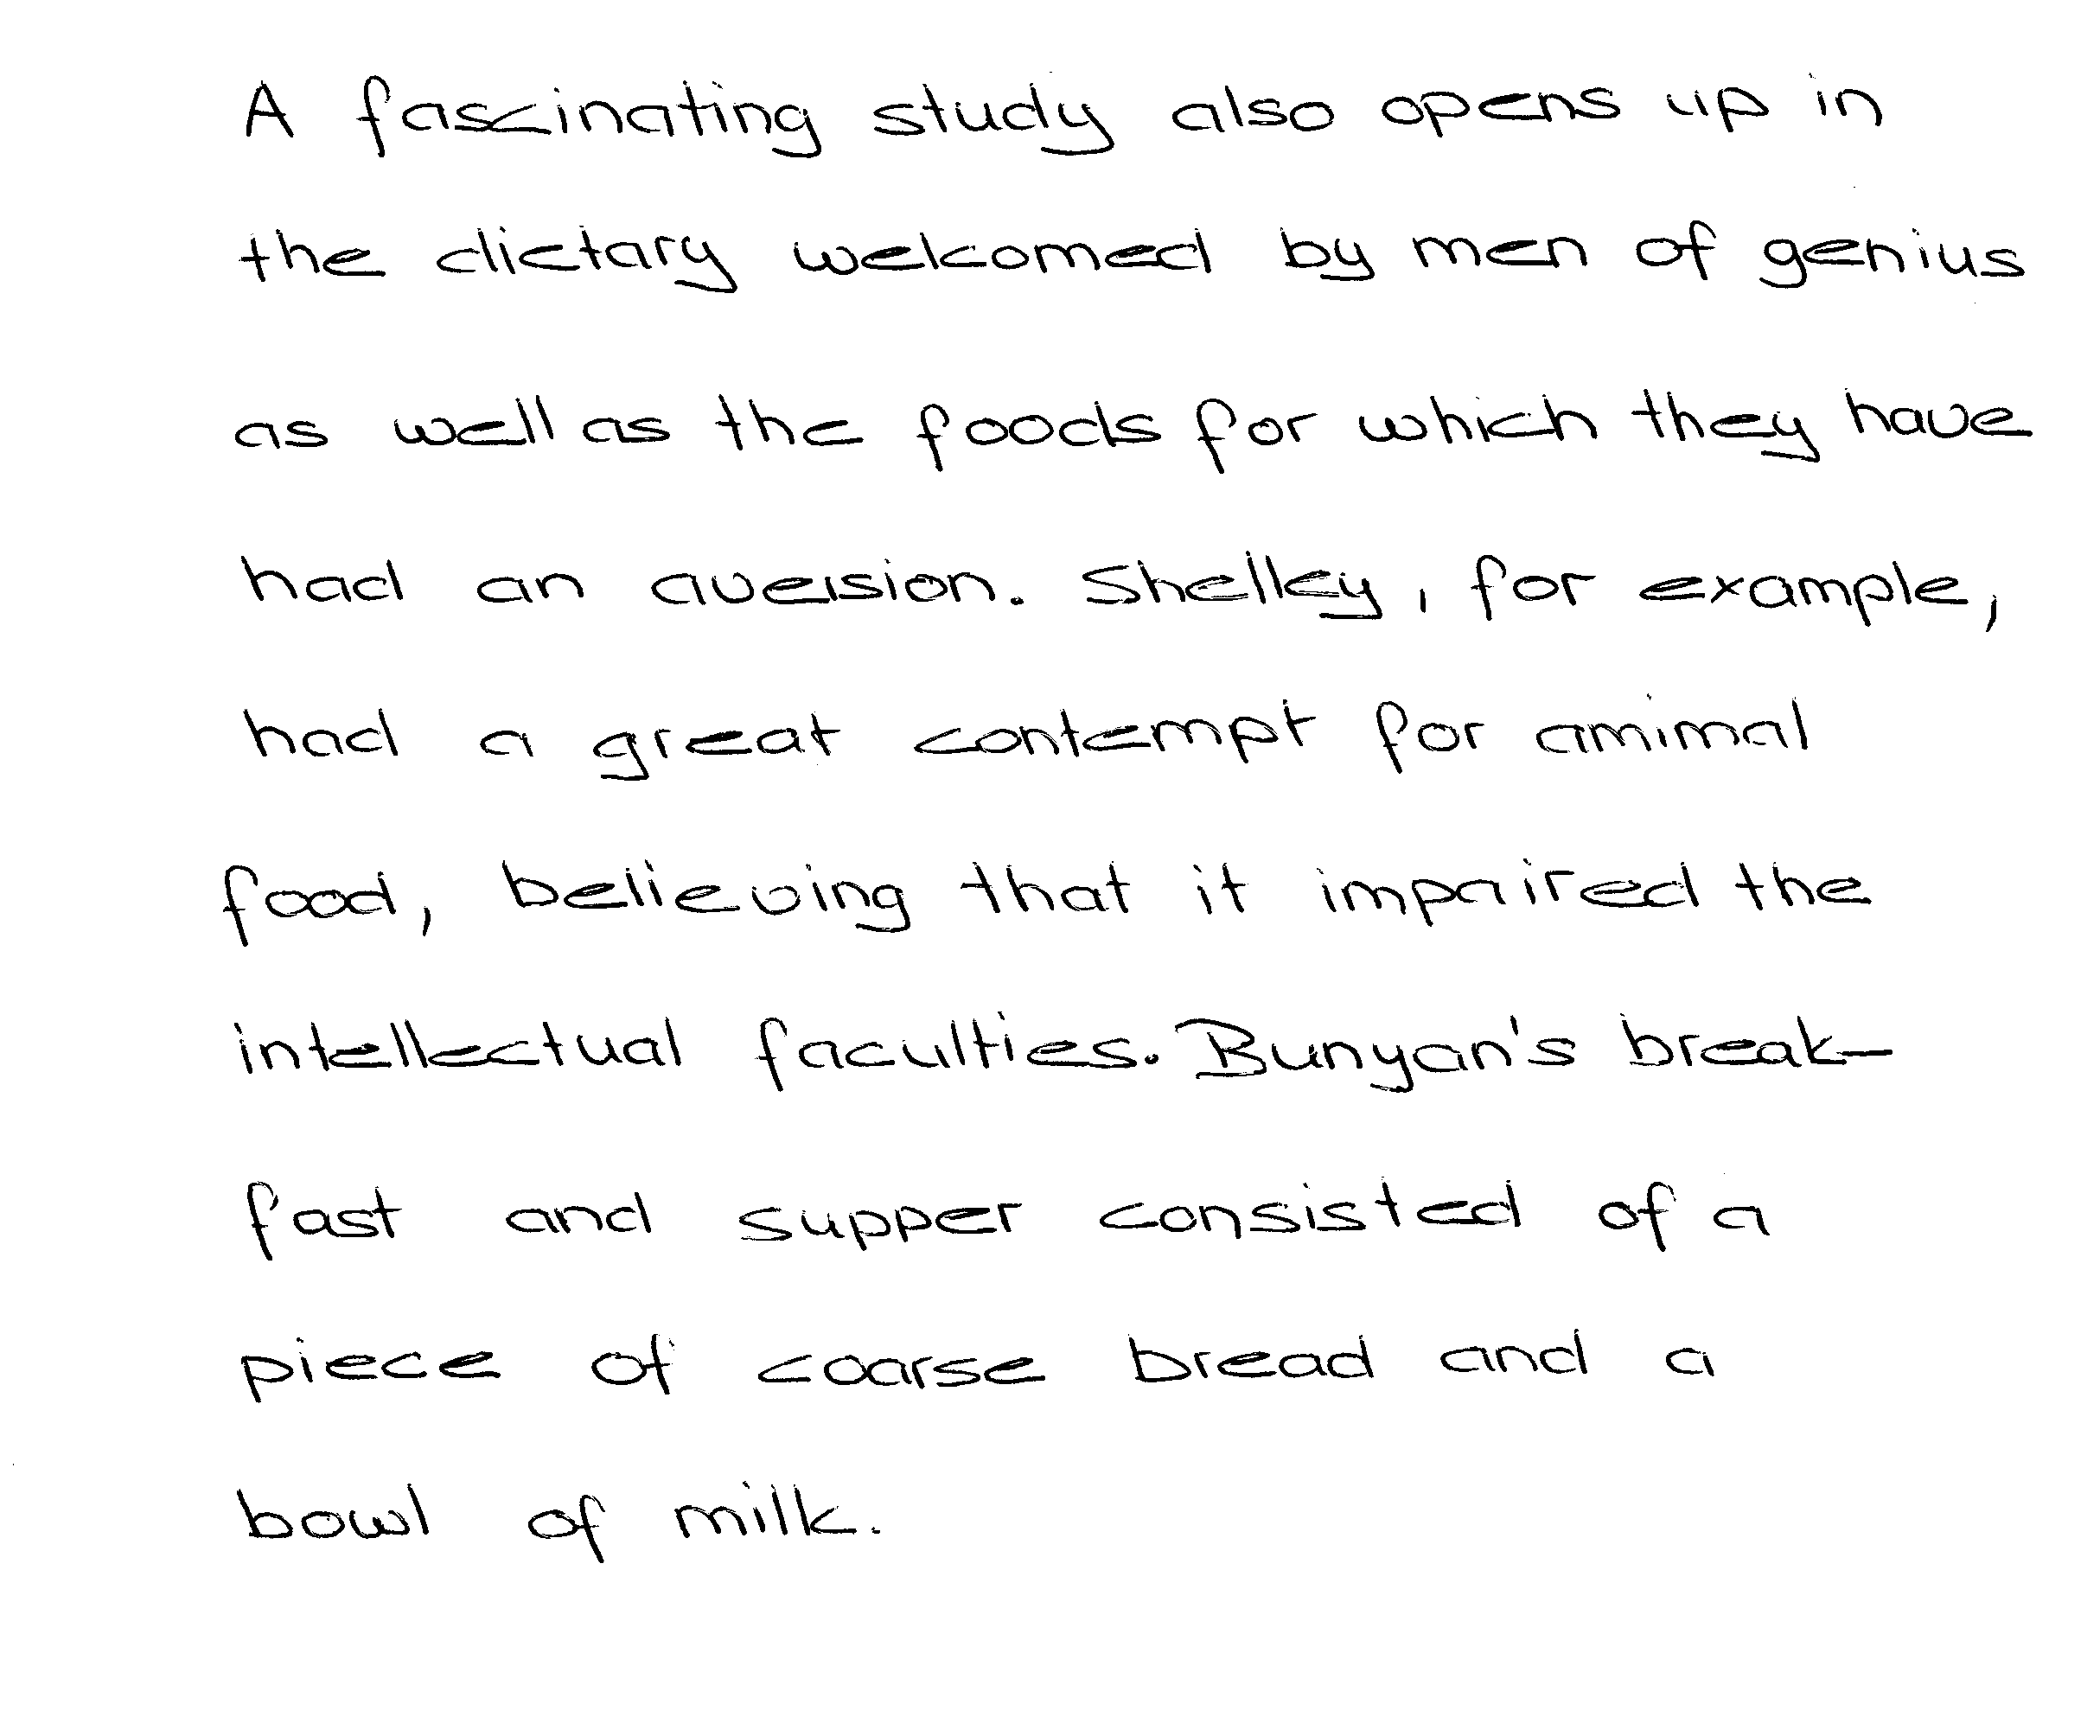 A fascinating study also opens up in
the dietary welcomed by men of genius
as well as the foods for which they have
had an aversion. Shelley, for example,
had a great contempt for amimal
food, believing that it impaired the
intellectual faculties. Bunyan's break-
fast and supper consisted of a
piece of coarse bread and a
bowl of milk.